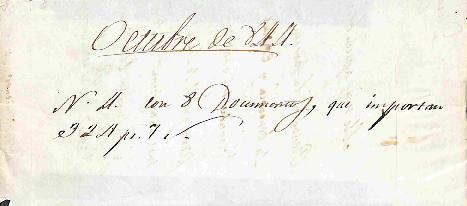 Octubre de 844.
N. 4. con 8 Documentos, que importan
324 ps. 7